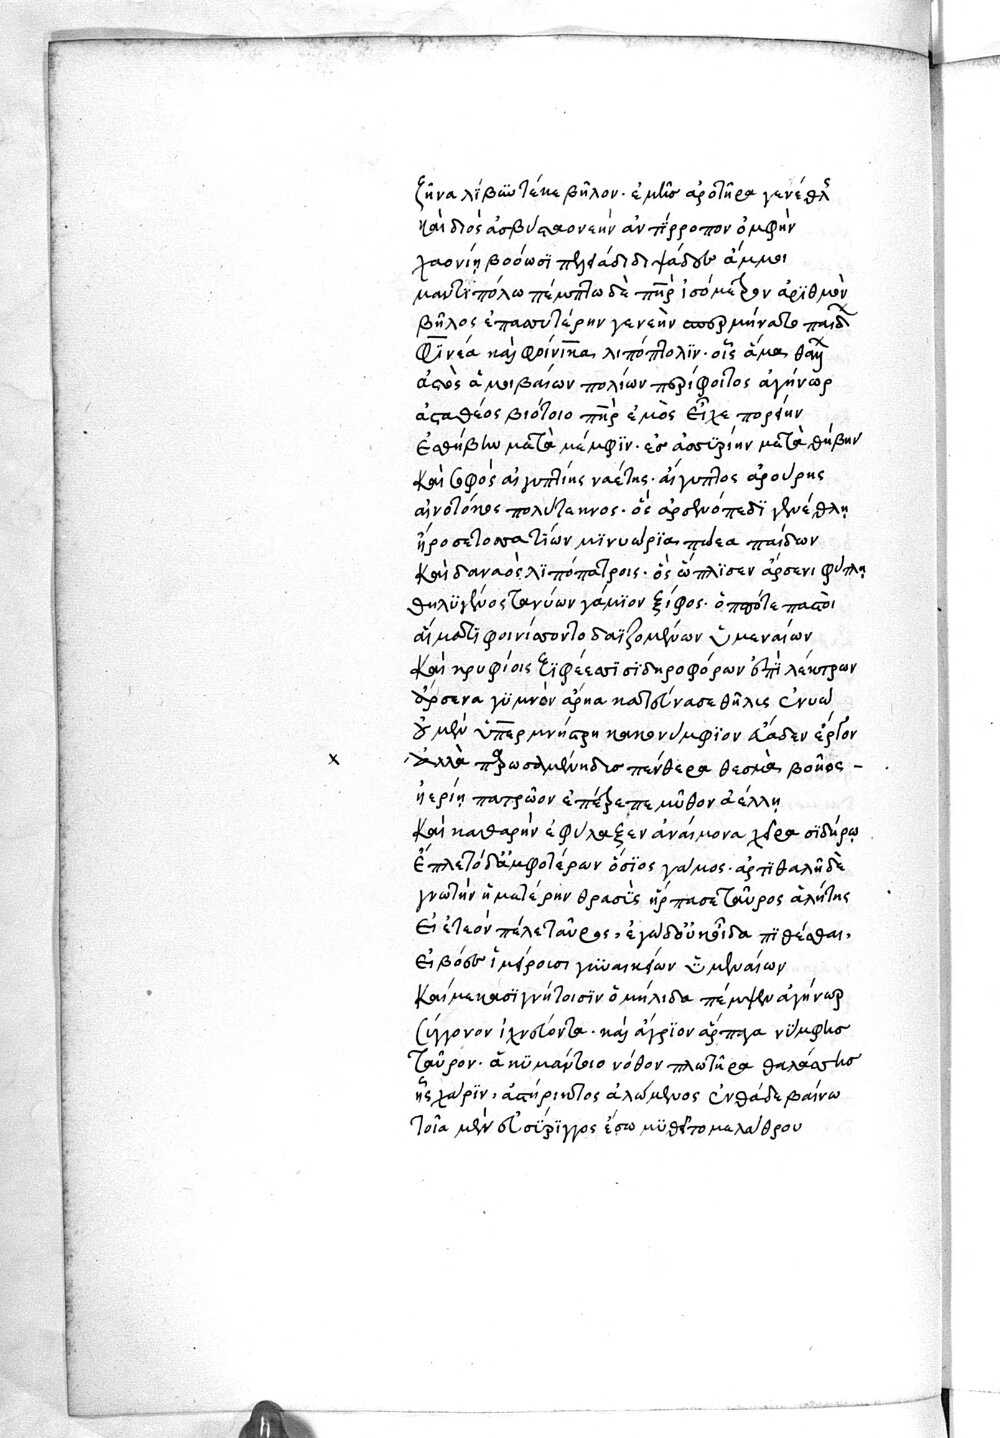 ζῆνα λίβυν τέκε βῆλον· ἐμῆς ἀροτῆρα γενέθλης
καὶ διὸς ἀσβύσταο νέην ἀντίρροπον ὀμφὴν
χαονίη βοόωσι πελειάδι διψάδες ἄμμοι
μαντιπόλω πέμπτω δὲ πατὴρ ἰσόμετρον ἀριθμὸν
βῆλος ἐπασσυτέρην γενεὴν ὥσπερ μήνατο παίδων
φινέα καὶ φοίνικα λιπόπτολιν· οἷς ἅμα θάλλων
ἀστὸς ἀμοιβαίων πολίων περίφοιτος ἀγήνωρ
ἀσταθέος βιότοιο πατὴρ ἐμὸς εἶχε πορείην
ἐς θήβην μετὰ μέμφιν· ἐς ἀσσυρίην μετὰ θήβην
καὶ σοφὸς αἰγυπτίης ναέτης· αἴγυπτος ἀρούρης
αἰνοτόκος πολύτεκνος· ὃς ἀρσενόπεδι γενέθλη
ἤροσε τοσσατίων μινυώρια πώεα παίδων
καὶ δαναὸς λιπόπατρις· ὃς ὥπλισεν ἄρσενι φύτλη
θηλυγενέος τανύων γάμιον ξίφος· ὁππότε παστοὶ
αἵματι φοινίσσοντο δαϊζομένων ὑμεναίων
καὶ κρυφίοις ξιφέεσσι σιδηροφόρων ἐπὶ λέκτρων
ἄρσενα γυμνὸν ἄρηα κατεύνασε θῆλυς ἐνυώ
οὐ μὲν ὑπερμνήστρη κακονύμφιον εὔαδεν ἔργον
ἀλλὰ παρωσαμένη δυσπένθερα θεσμὰ τοκῆος
ἠερίη πατρῶον ἐπέτρεπε μῦθον ἀέλλη
καὶ καθαρὴν ἐφύλαξεν ἀναίμονα χεῖρα σιδήρω
ἔπλετο δ' ἀμφοτέρων ὅσιος γάμος· ἀρτιθαλῆ δὲ
γνωτὴν ἡμετέρην θρασὺς ἥρπασε ταῦρος ἀλήτης
εἰ ἐτεὸν πέλε ταῦρος, ἐγὼ δ' οὐκ οἶδα πιθέσθαι,
εἰ βόες ἱμείρουσι γυναικείων ὑμεναίων
καί με κασιγνήτοισιν ὁμήλυδα πέμψεν ἀγήνωρ
σύγγονον ἰχνεύοντα· καὶ ἄγριον ἅρπαγα νύμφης
ταῦρον· ἀκυμάντοιο νόθον πλωτῆρα θαλάσσης
ἧς χάριν, ἀστήρικτος ἀλώμενος ἐνθάδε βαίνω
τοῖα μὲν εὐσύριγγος ἔσω μυθεῖτο μελάθρου